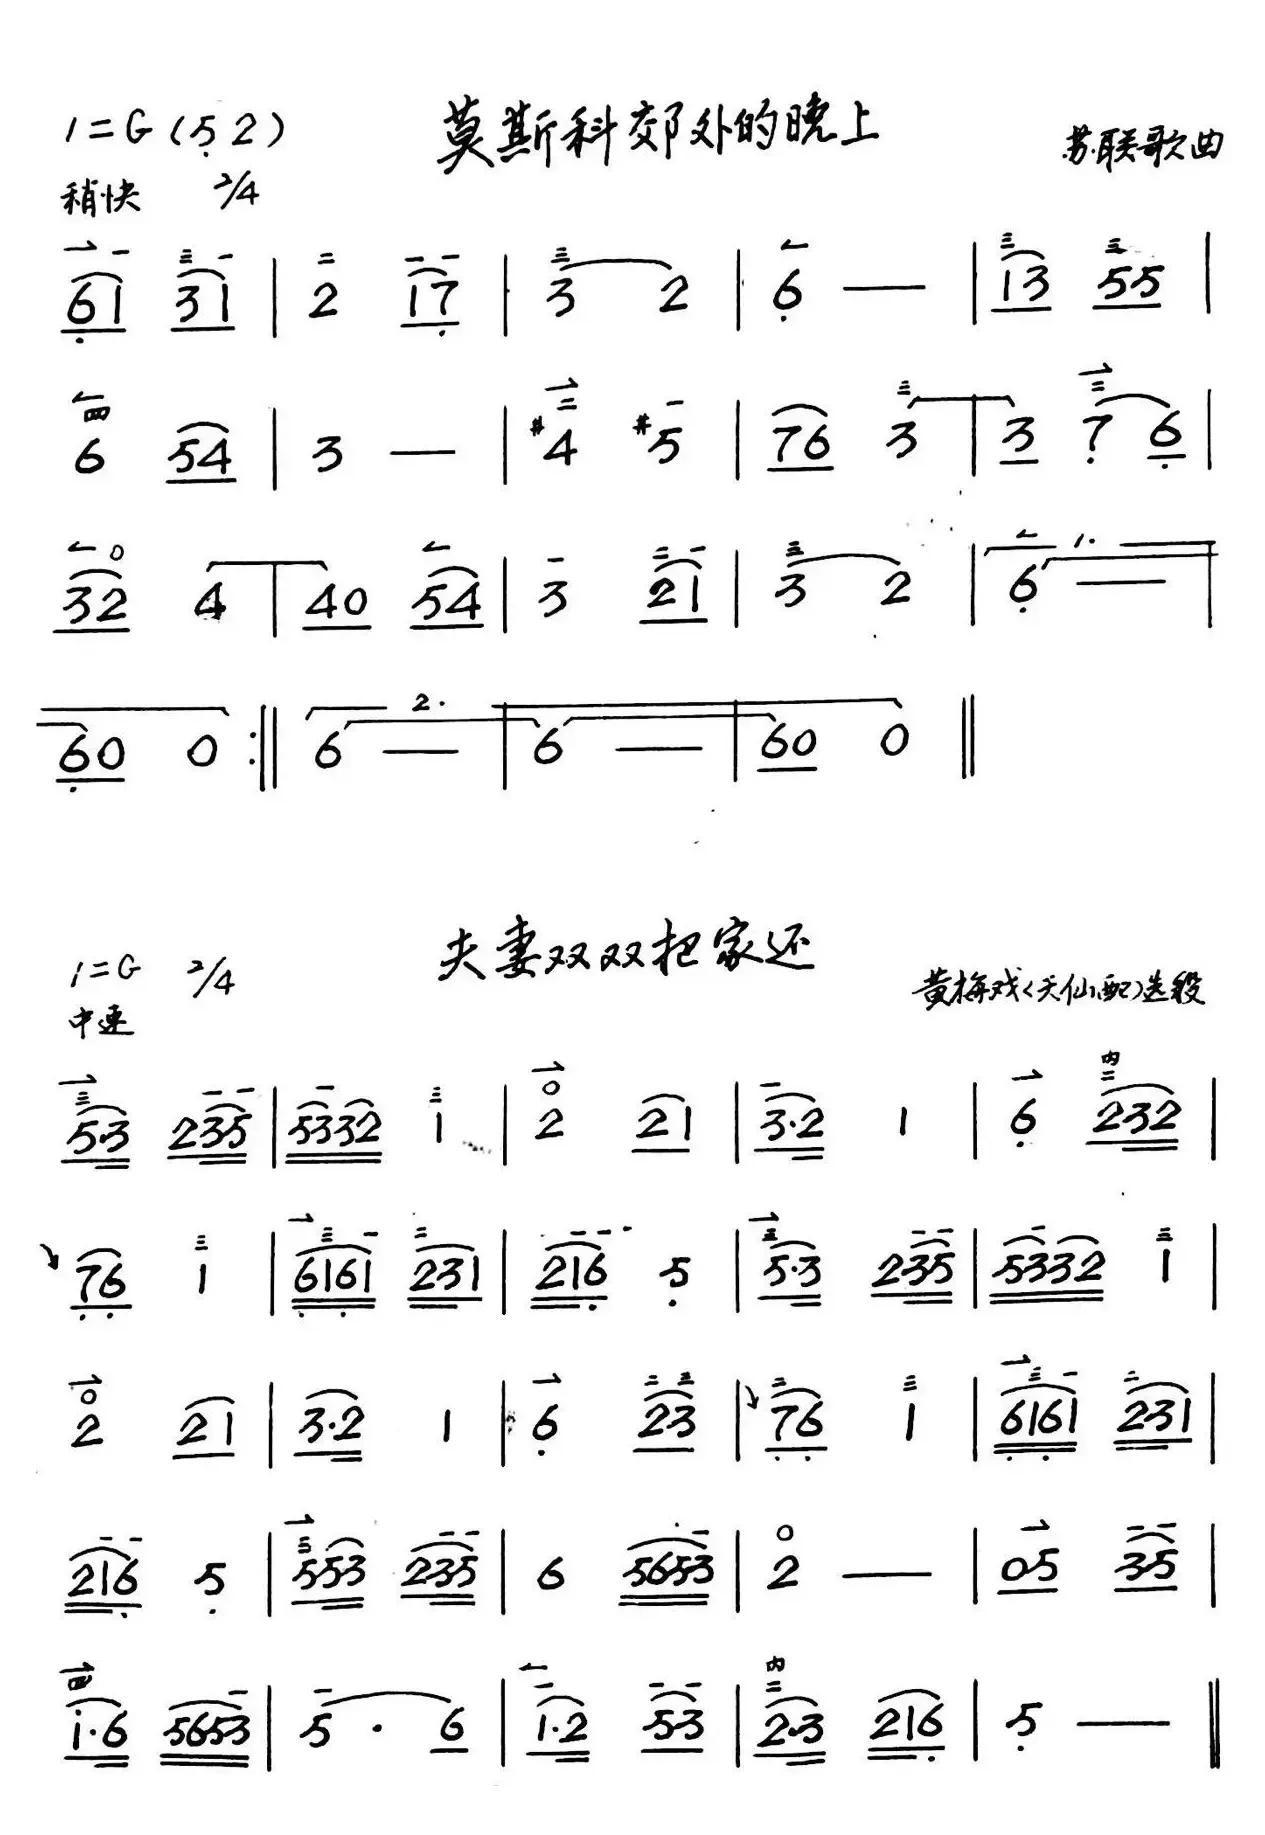 莫斯科郊外的晚上
1=G(5̣ 2)
苏联歌曲
稍快 2/4
6̣1 31 | 2 17̣ | 3 2 | 6̣ — | 13 55 |
6 54 | 3 — | #4 #5 | 76 3 | 3 7̣ 6̣ |
32 4 | 40 54 | 3 21 | 3 2 | 1. 6̣ — |
6̣0 0 :‖ 2. 6 — | 6 — | 60 0 ‖
夫妻双双把家还
1=G 2/4
黄梅戏《天仙配》选段
中速
5·3 235 | 5332 1 | 2 21 | 3·2 1 | 6̣ 232 |
7̣6̣ 1 | 6̣16̣1 231 | 216̣ 5̣ | 5·3 235 | 5332 1 |
2 21 | 3·2 1 | 6̣ 23 | 7̣6̣ 1 | 6̣16̣1 231 |
216̣ 5̣ | 553 235 | 6 5653 | 2 — | 05 35 |
i·6 5653 | 5 · 6 | 1·2 53 | 2·3 216̣ | 5̣ — ‖